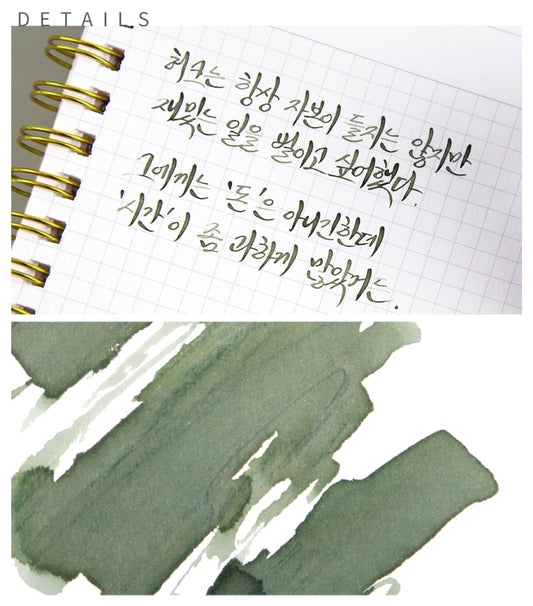 DETAILS
허크는 항상 자본이 들지는 않지만
재밌는 일을 벌이고 싶어했다.
그에게는 '돈'은 아니긴한데
'시간'이 좀 과하게 많았거든.